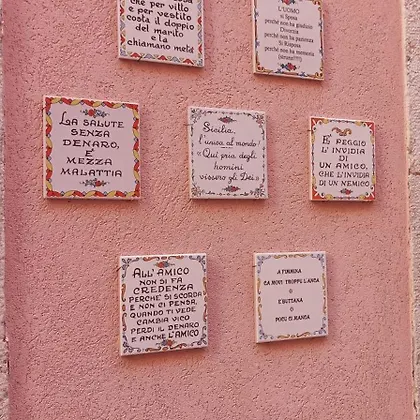 che per vitto
e per vestito
costa il doppio
del marito
e la
chiamano metà
L'UOMO
si Sposa
perchè non ha giudizio
Divorzia
perchè non ha pazienza
Si Risposa
perchè non ha memoria
LA SALUTE
SENZA
DENARO,
E'
MEZZA
MALATTIA
Sicilia,
l'unica al mondo!
«Qui pria degli
homini
vissero gli Dei»
E' PEGGIO
L'INVIDIA
DI
UN AMICO,
CHE L'INVIDIA
DI UN NEMICO
ALL'AMICO
NON SI FA
CREDENZA
PERCHÈ SI SCORDA
E NON CI PENSA,
QUANDO TI VEDE
CAMBIA VICO
PERDI IL DENARO
E ANCHE L'AMICO
A FIMMINA
CA MOVI TROPPU L'ANCA
O
E'BUTTANA
O
POCU CI MANCA